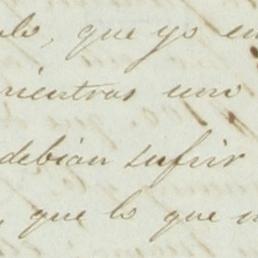 que yo
mientras uno
debian sufrir
, que lo que